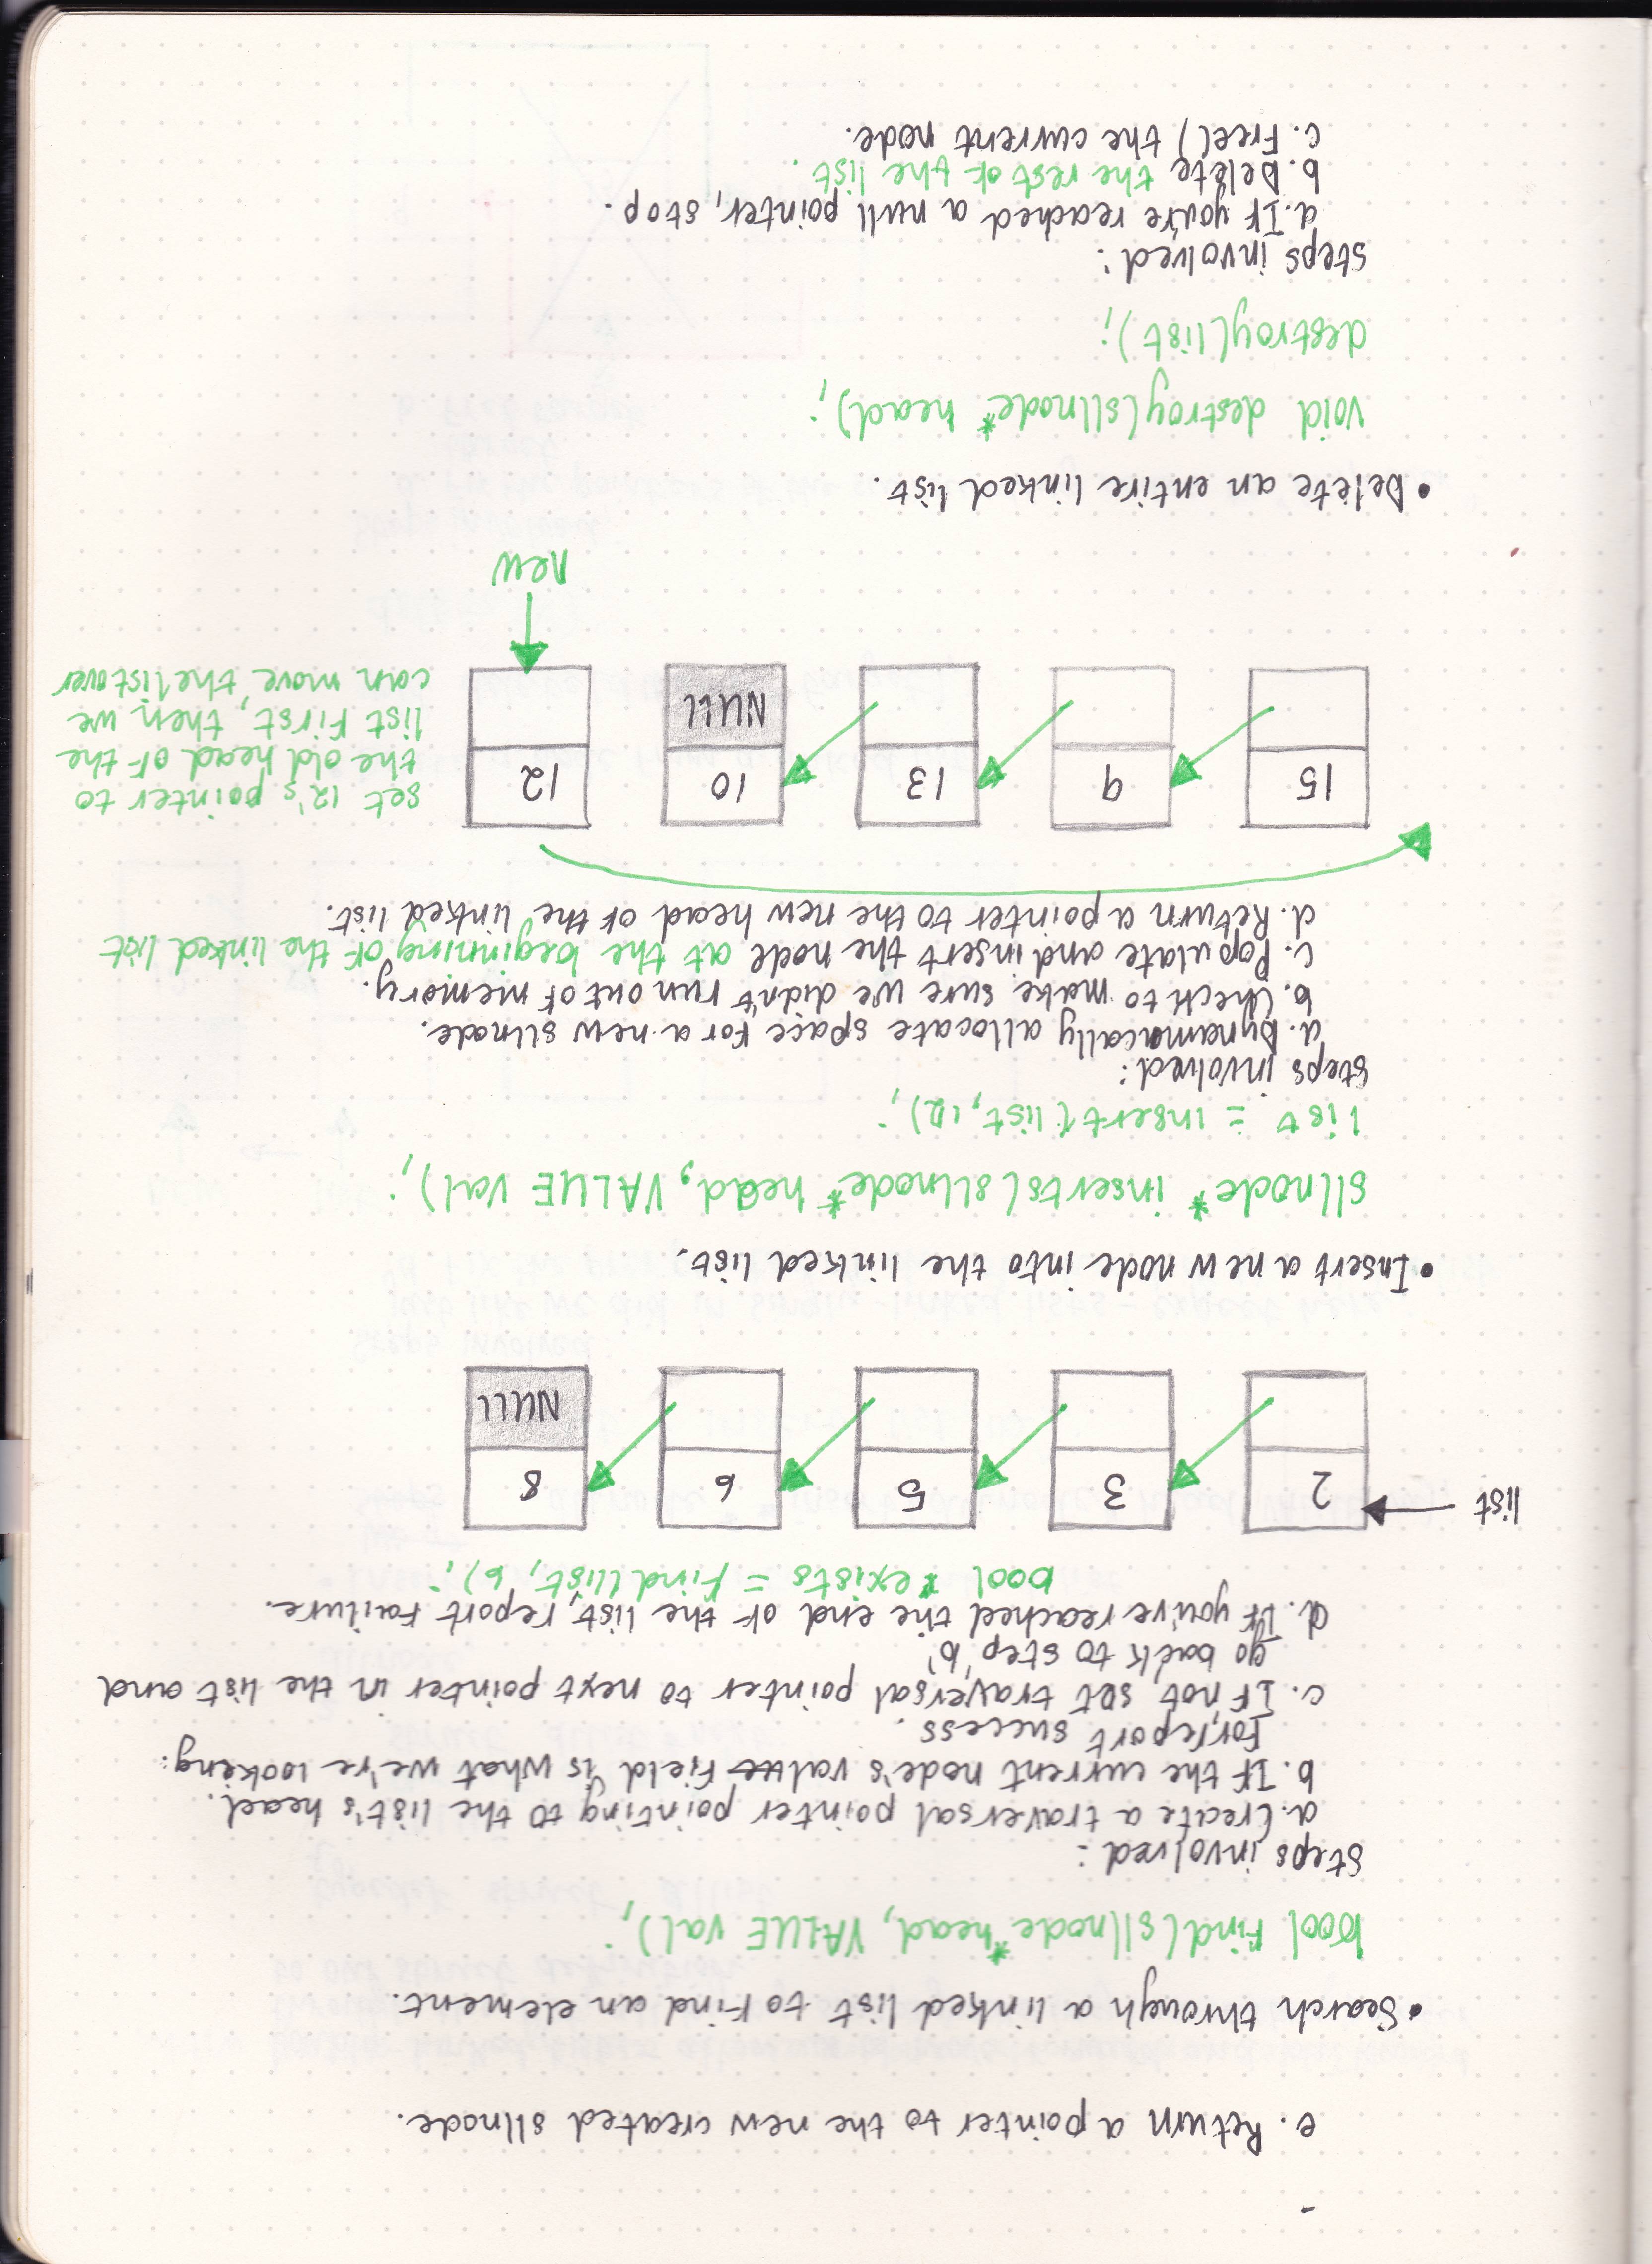 e. Return a pointer to the new created sllnode.
• Search through a linked list to find an element.
bool find(sllnode* head, VALUE val);
Steps involved:
a. Create a traversal pointer pointing to the list's head.
b. If the current node's val field is what we're looking
for, report success.
c. If not, set traversal pointer to next pointer in the list and
go back to step 'b'
d. If you've reached the end of the list, report failure.
bool exists = find(list, 6);
list
2 3 5 6 8
NULL
• Insert a new node into the linked list.
sllnode* inserts(sllnode* head, VALUE val);
list = insert(list, 12);
steps involved:
a. Dynamacally allocate space for a new sllnode.
b. Check to make sure we didn't run out of memory.
c. Populate and insert the node at the beginning of the linked list
d. Return a pointer to the new head of the linked list.
15 9 13 10 12
NULL
set 12's pointer to
the old head of the
list first, then we
can move the list over
new
• Delete an entire linked list.
void destroy(sllnode* head);
destroy(list);
steps involved:
a. If you're reached a null pointer, stop.
b. Delete the rest of the list.
c. Free() the current node.